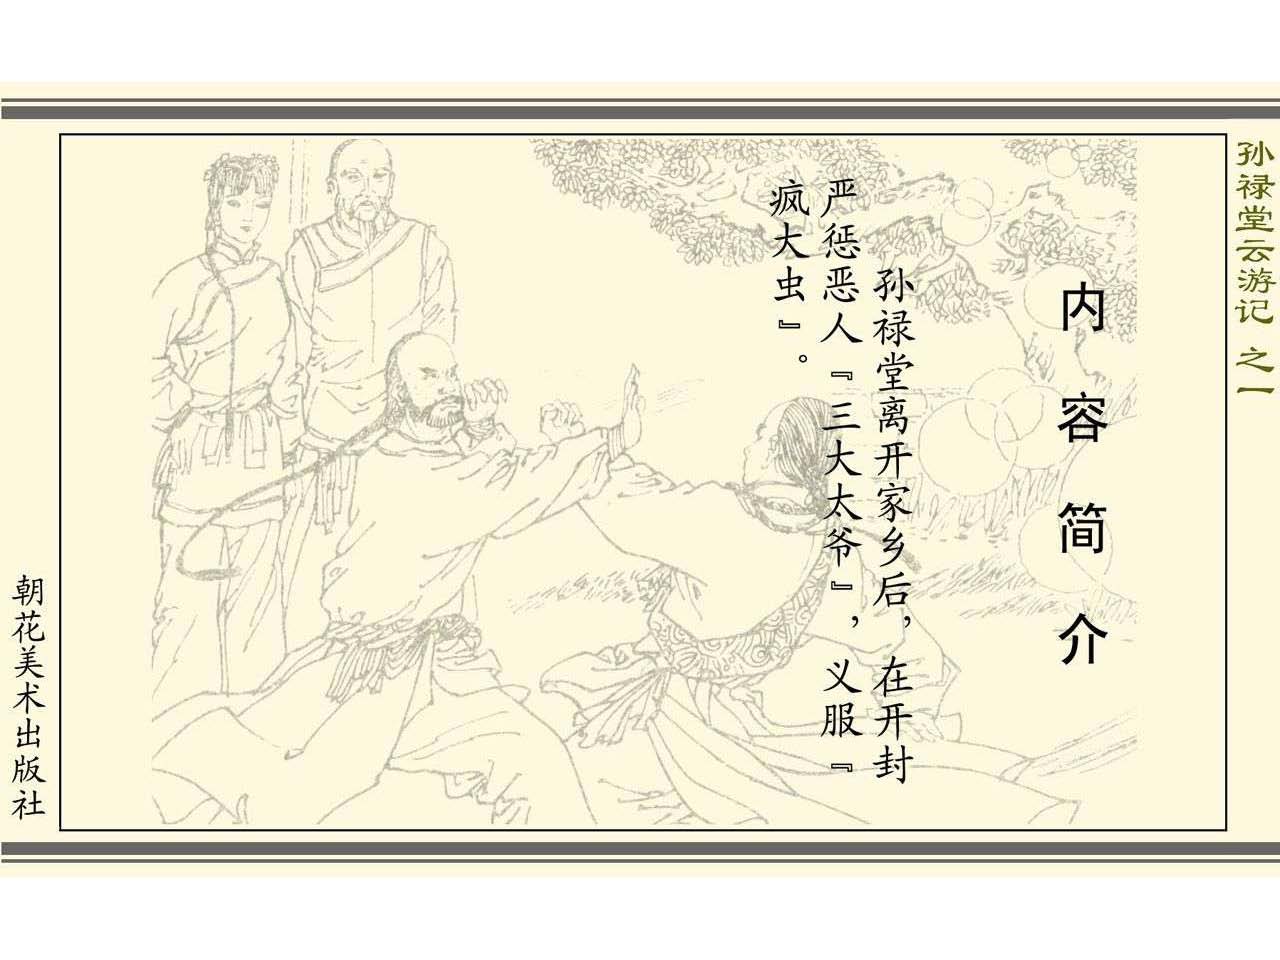 孙禄堂云游记 之一
内容简介
孙禄堂离开家乡后，在开封
严惩恶人『三大太爷』，义服『
疯大虫』。
朝花美术出版社